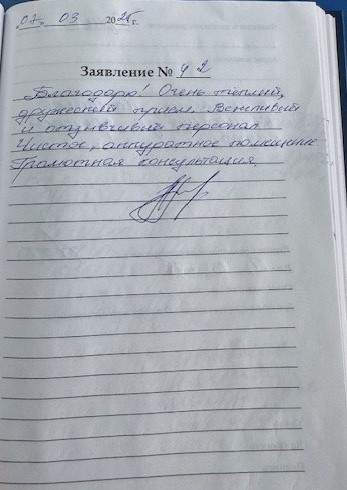 "07" 03 2025г.
Заявление № 42
Благодарю! Очень теплый,
дружеский прием. Вежливый
и отзывчивый персонал
Чистое, аккуратное помещение
Грамотная консультация.